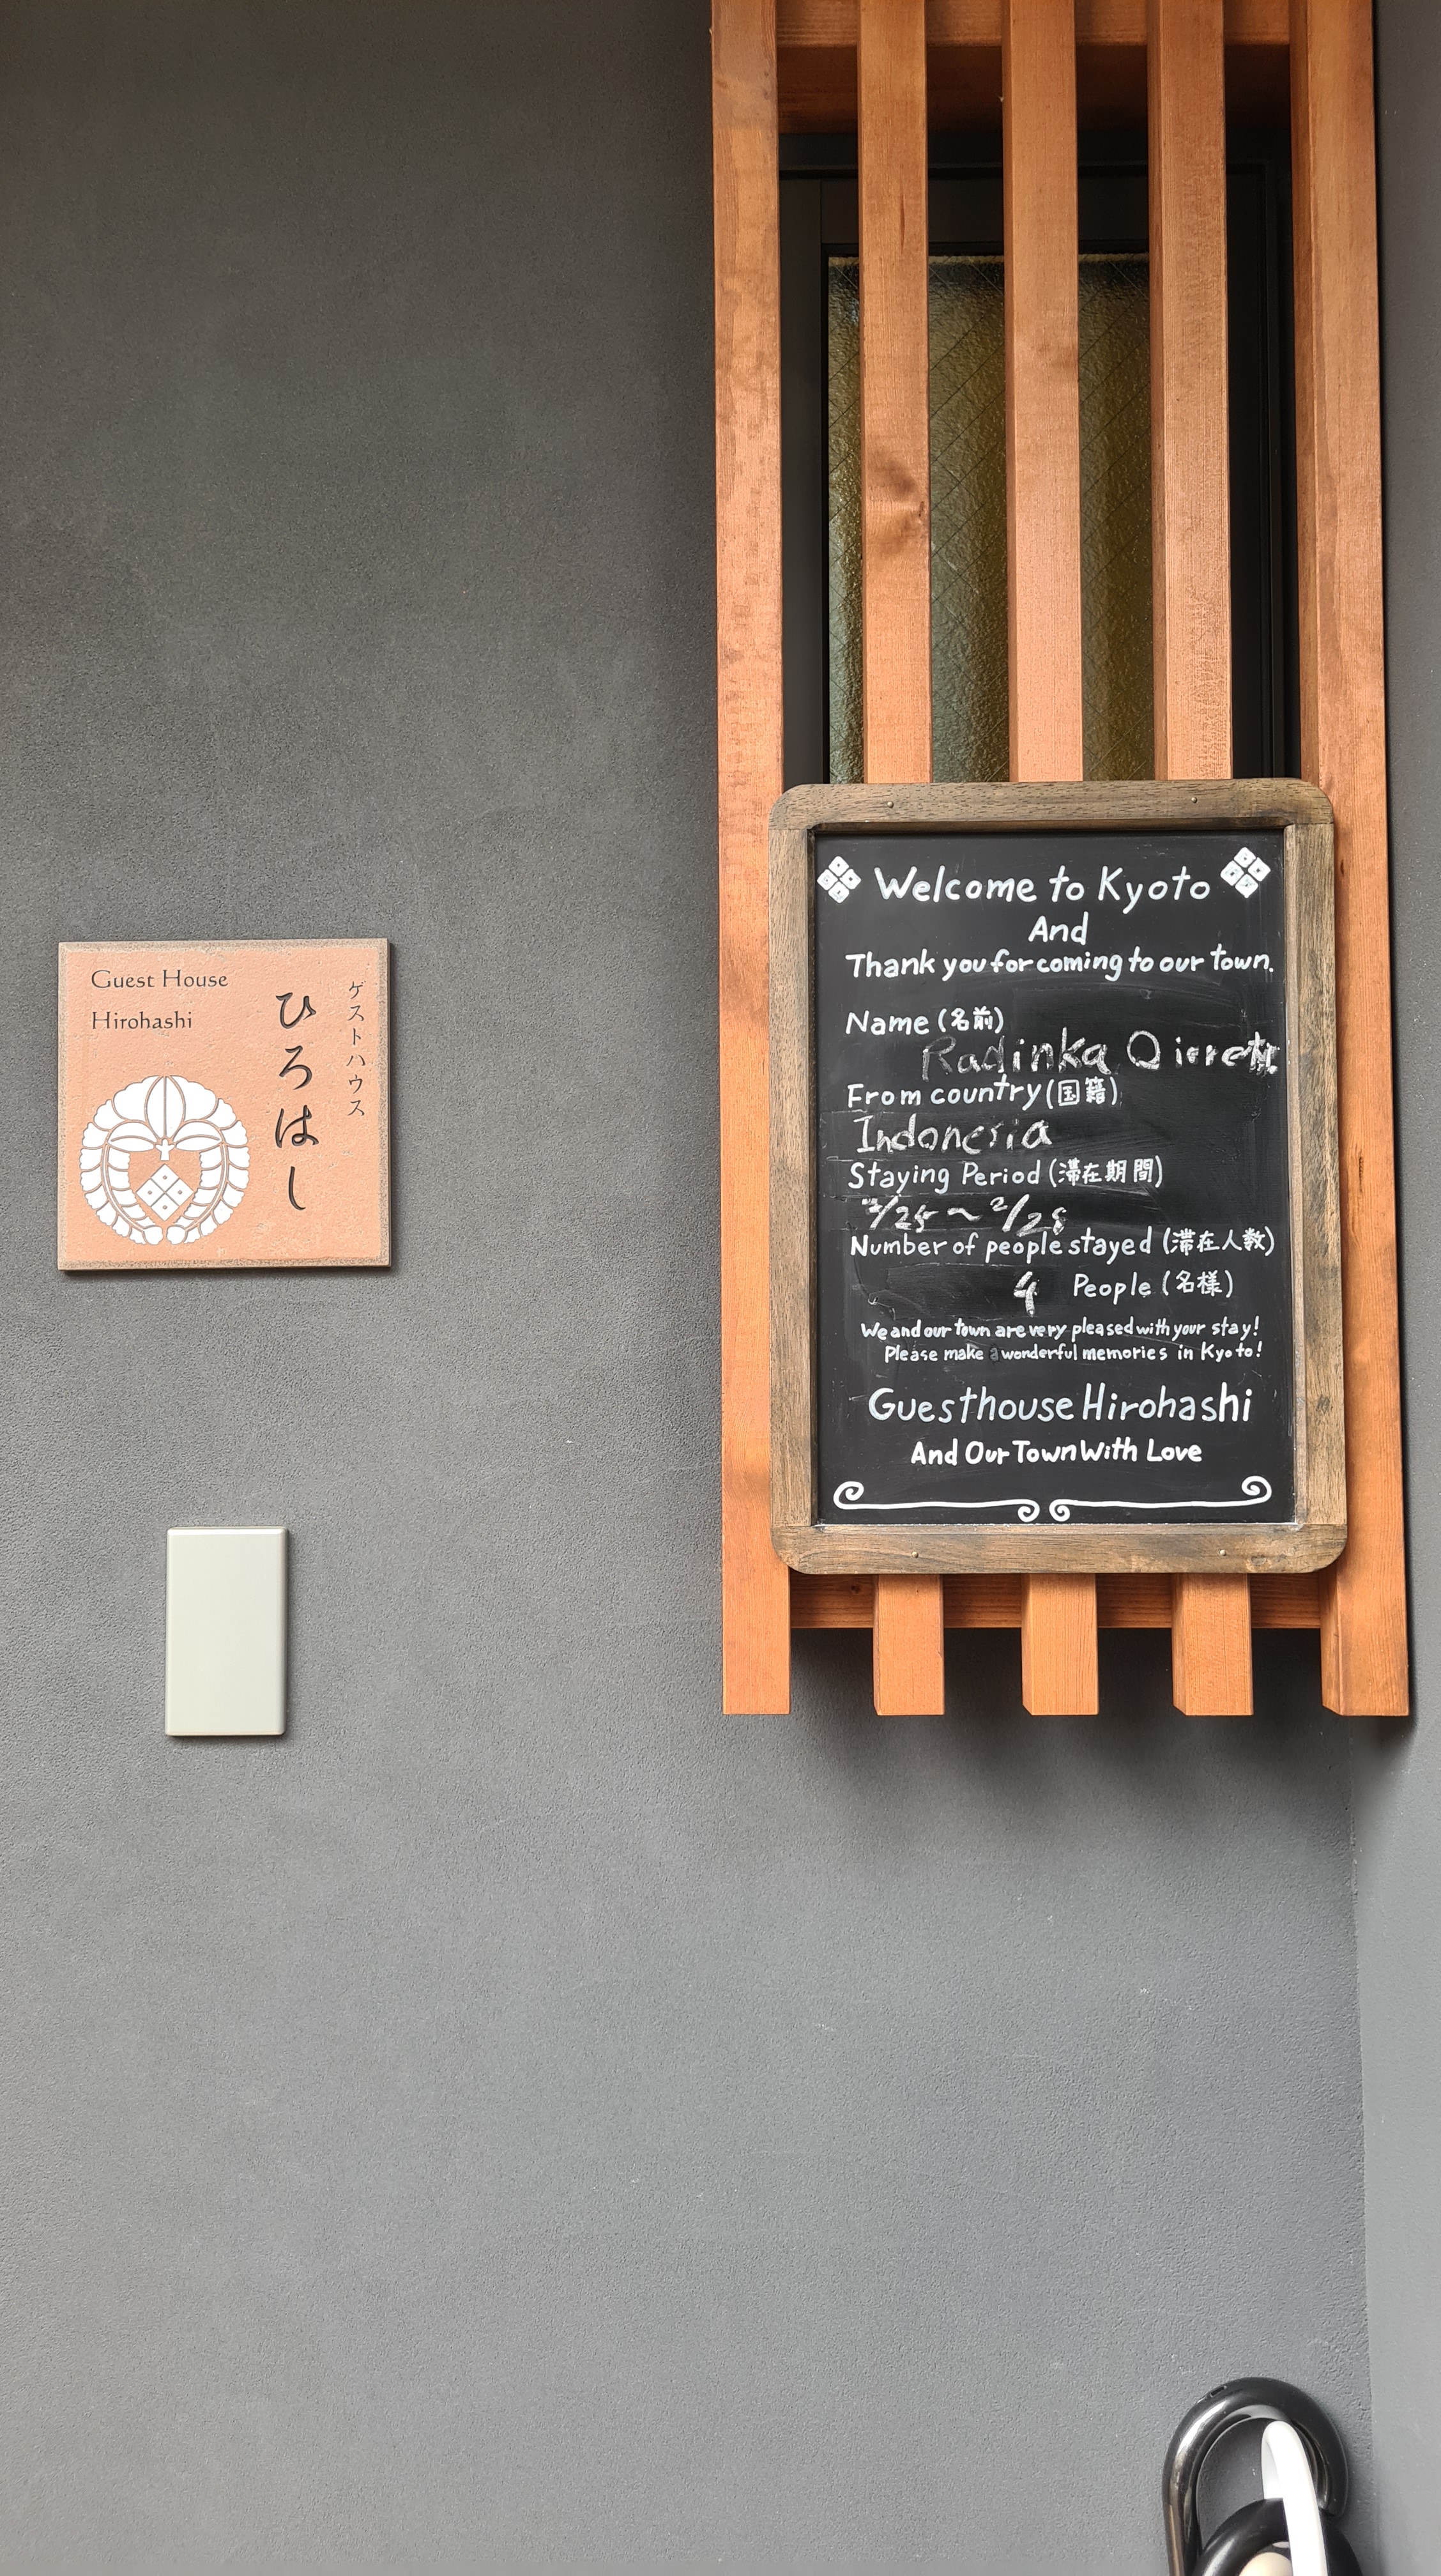 Guest House
Hirohashi
ゲストハウス
ひろはし
Welcome to Kyoto
And
Thank you for coming to our town.
Name (名前)
Radinka
From country (国籍)
Indonesia
Staying Period (滞在期間)
2/25 ~ 2/28
Number of people stayed (滞在人数)
4 People (名様)
We and our town are very pleased with your stay!
Please make a wonderful memories in Kyoto!
Guesthouse Hirohashi
And Our Town With Love